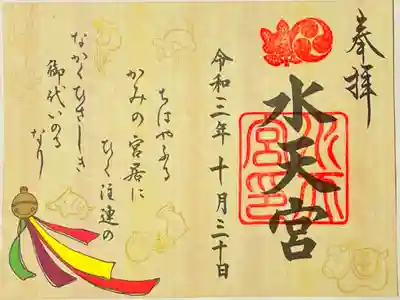 奉拝
水天宮
水天宮印
令和三年十月三十日
ちはやふる
かみの宮居に
ひく注連の
なかくひさしき
御代いのる
なり